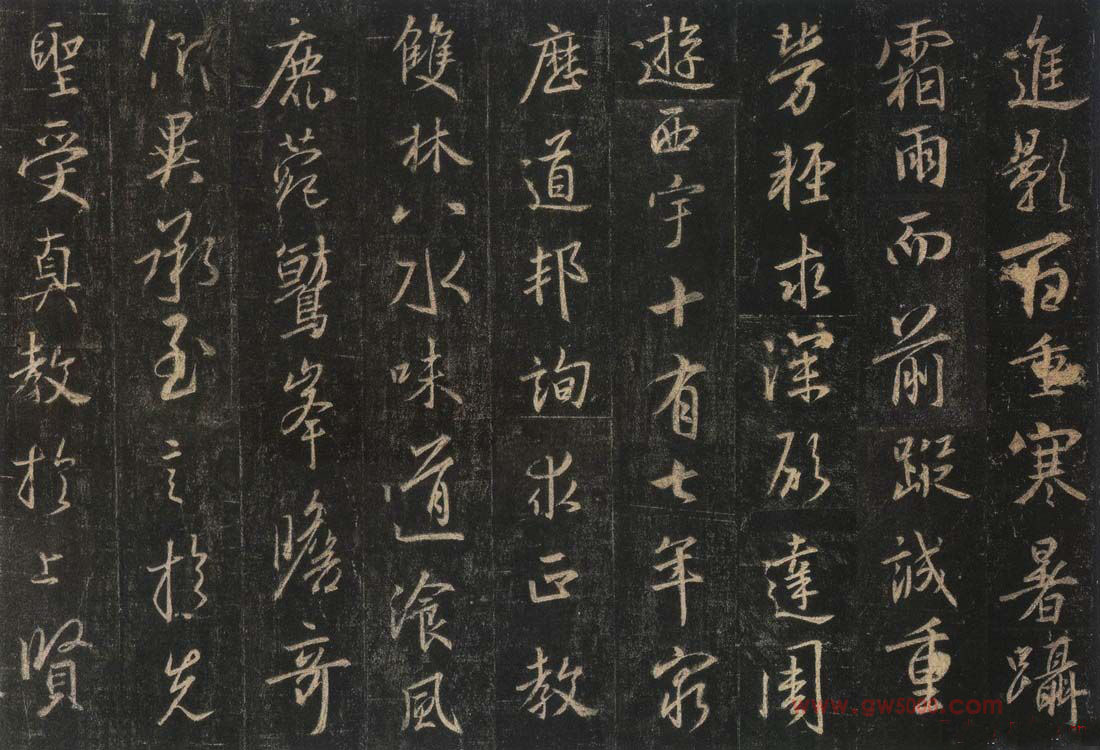 進影百重寒暑躡
霜雨而前蹤誠重
勞輕求深願達周
遊西宇十有七年窮
歷道邦詢求正教
雙林八水味道飡風
鹿菀鷲峯瞻奇
仰異承至言於先
聖受真教於上賢